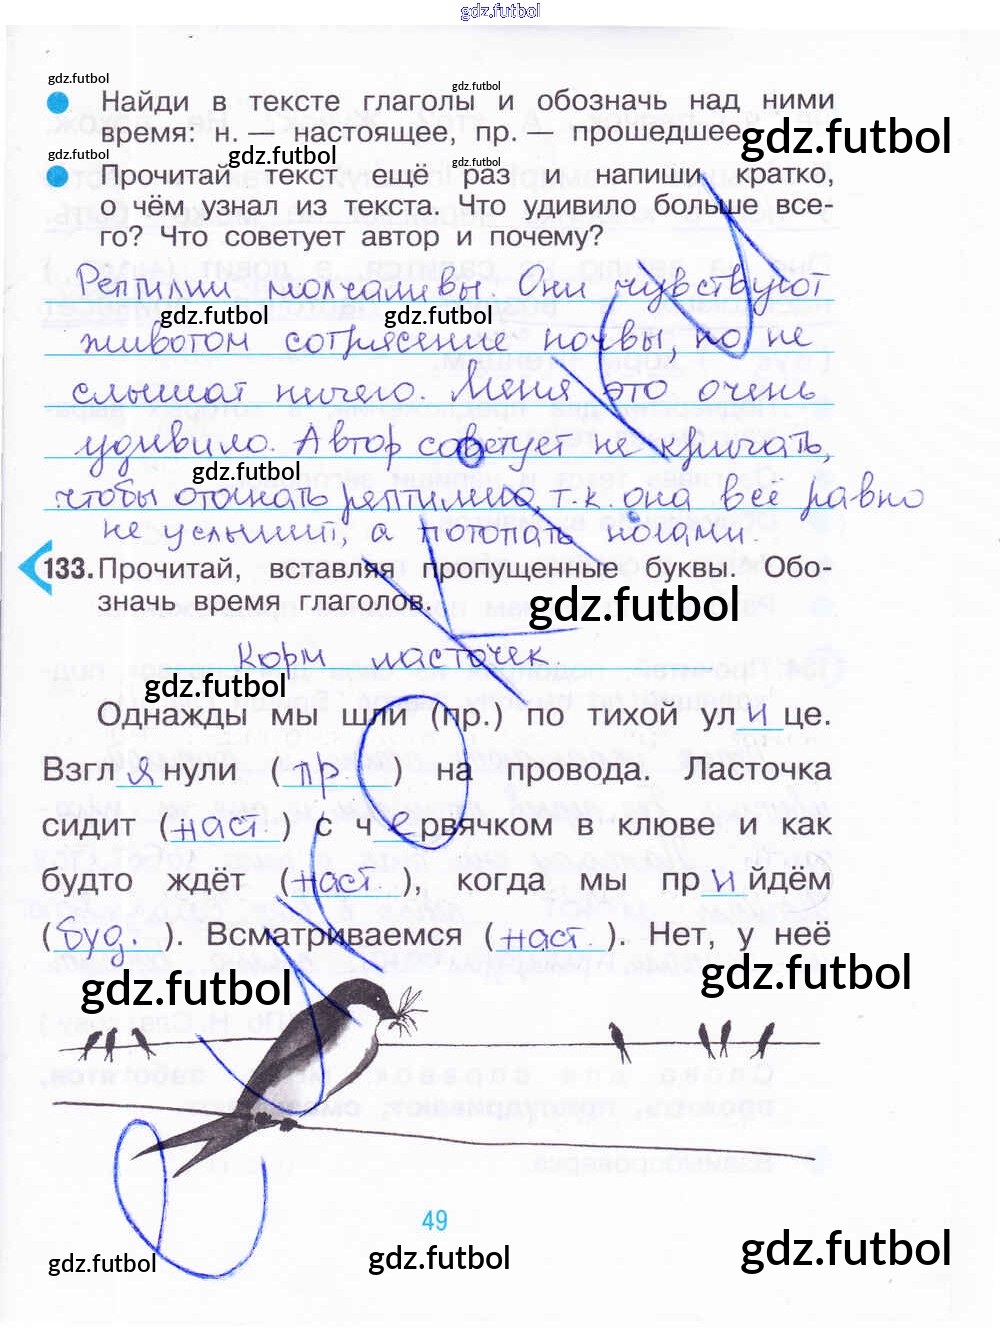 gdz.futbol
gdz.futbol
gdz.futbol
Найди в тексте глаголы и обозначь над ними
время: н. — настоящее, пр. — прошедшее.
gdz.futbol
gdz.futbol
gdz.futbol
gdz.futbol
Прочитай текст ещё раз и напиши кратко,
о чём узнал из текста. Что удивило больше все-
го? Что советует автор и почему?
Рептилии молчаливы. Они чувствуют
gdz.futbol
gdz.futbol
животом сотрясение почвы, но не
слышат ничего. Меня это очень
удивило. Автор советует не кричать,
gdz.futbol
чтобы отогнать рептилию, т.к. она все равно
не услышит, а потопать ногами.
133. Прочитай, вставляя пропущенные буквы. Обо-
значь время глаголов.
gdz.futbol
Корм ласточек
gdz.futbol
Однажды мы шли (пр.) по тихой ул и це.
Взгл я нули ( пр ) на провода. Ласточка
сидит ( наст. ) с ч е рвячком в клюве и как
будто ждёт ( наст. ), когда мы пр и йдём
( буд. ). Всматриваемся ( наст. ). Нет, у неё
gdz.futbol
gdz.futbol
49
gdz.futbol
gdz.futbol
gdz.futbol